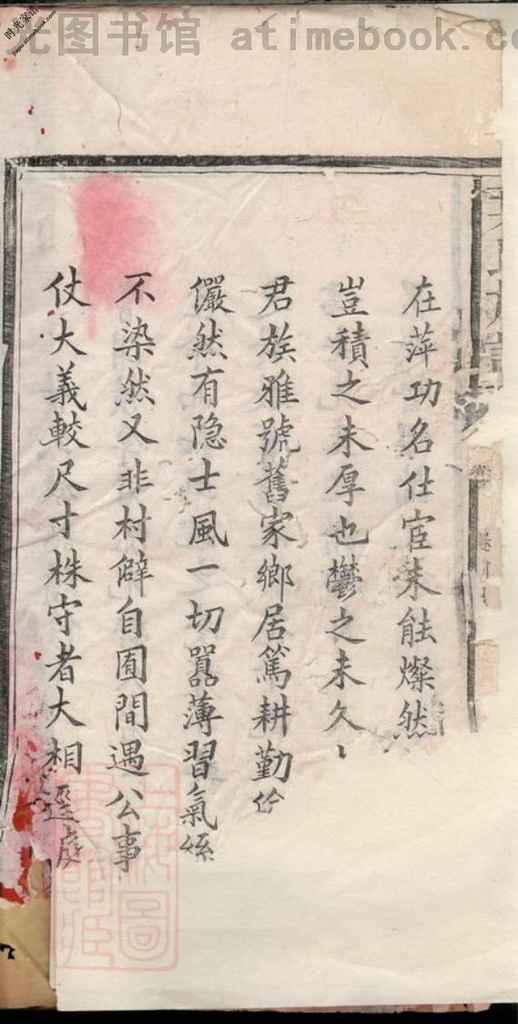 光图书馆 atimebook.co
在萍功名仕宦未能燦然
豈積之未厚也鬱之未久、
君族雅號舊家鄉居篤耕勤
儼然有隐士風一切囂薄習氣
不染然又非村僻自囿間遇公事
仗大義較尺寸株守者大相逕庭